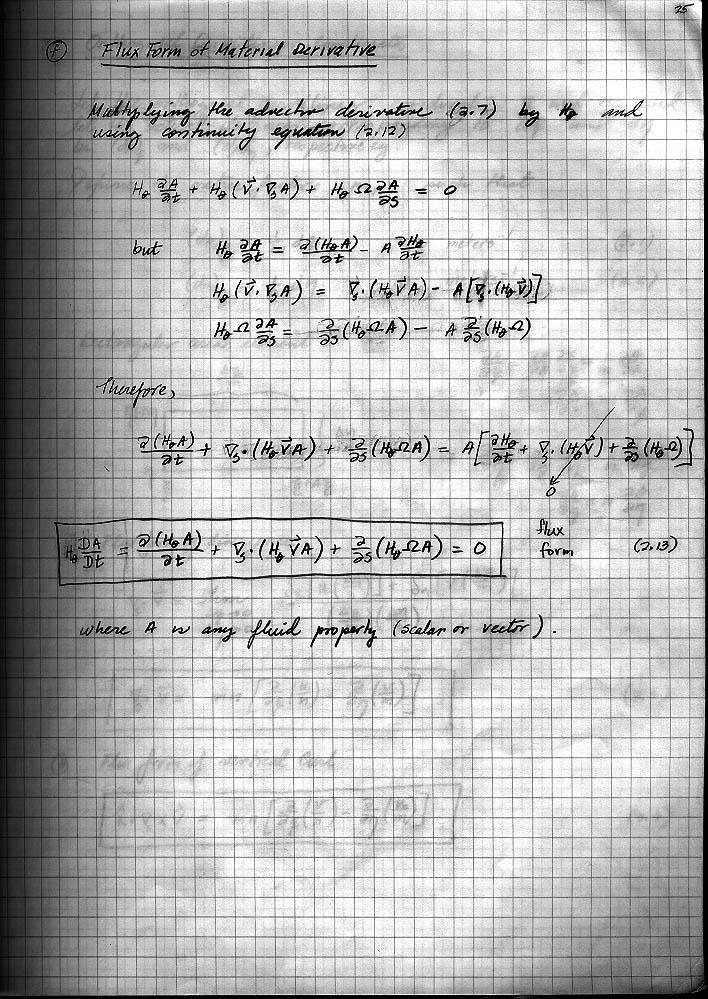 25
(f) Flux Form of Material Derivative
Multiplying the advective derivative (2.7) by H_θ and
using continuity equation (2.12)
H_θ ∂A/∂t + H_θ (V⃗ · ∇_s A) + H_θ Ω ∂A/∂s = 0
but H_θ ∂A/∂t = ∂(H_θ A)/∂t − A ∂H_θ/∂t
H_θ (V⃗ · ∇_s A) = ∇_s · (H_θ V⃗ A) − A [∇_s · (H_θ V⃗)]
H_θ Ω ∂A/∂s = ∂/∂s (H_θ Ω A) − A ∂/∂s (H_θ Ω)
Therefore,
∂(H_θ A)/∂t + ∇_s · (H_θ V⃗ A) + ∂/∂s (H_θ Ω A) = A [∂H_θ/∂t + ∇_s · (H_θ V⃗) + ∂/∂s (H_θ Ω)]
0
H_θ DA/Dt = ∂(H_θ A)/∂t + ∇_s · (H_θ V⃗ A) + ∂/∂s (H_θ Ω A) = 0 flux form (2.13)
where A is any fluid property (scalar or vector).